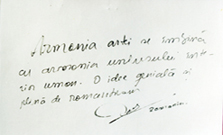 Armonia artei se îmbină
cu armonia universului într-
un unison. O idee genială și
plină de romantism.